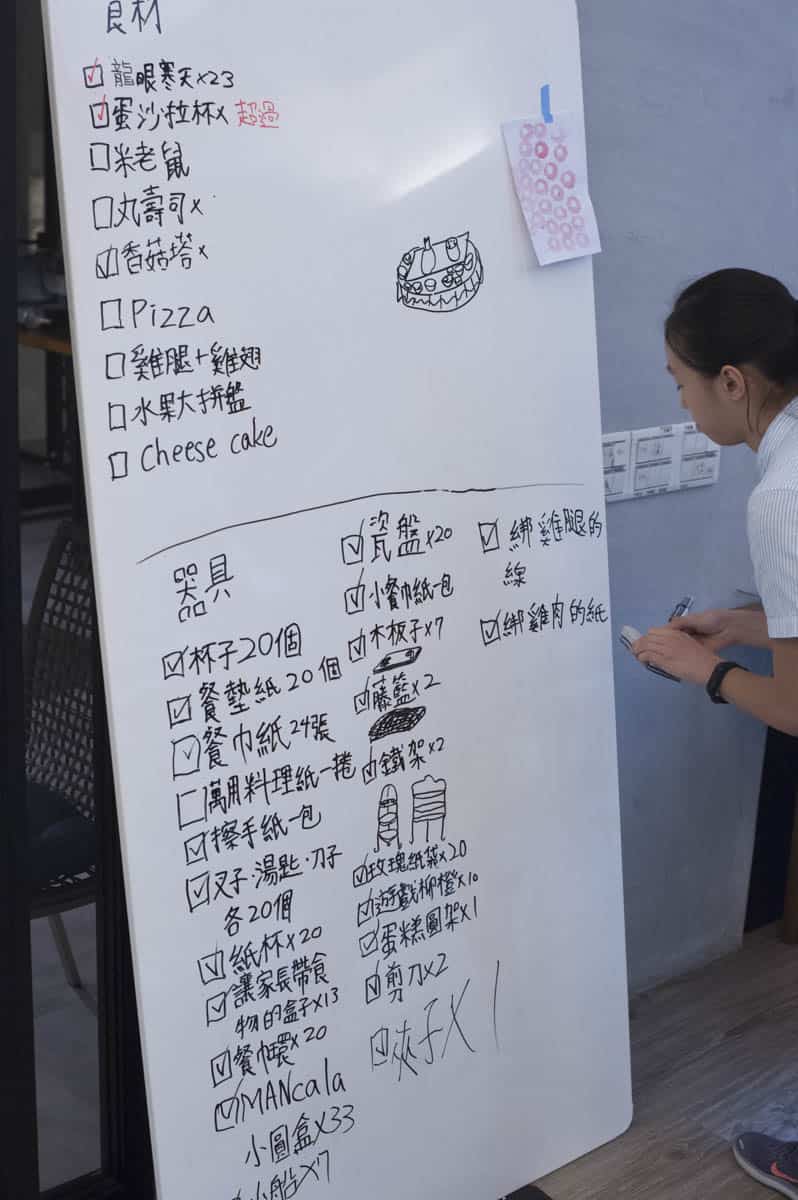 食材
龍眼寒天x23
蛋沙拉杯x 超過
米老鼠
丸壽司x
香菇塔x
Pizza
雞腿+雞翅
水果大拼盤
Cheese cake
器具
杯子20個
餐墊紙20個
餐巾紙24張
萬用料理紙一捲
擦手紙一包
叉子·湯匙·刀子
各20個
紙杯x20
讓家長帶食
物的盒子x13
餐巾環x20
MANcala
小圓盒x33
小船x7
瓷盤x20
小餐巾紙一包
木板子x7
藤籃x2
鐵架x2
玫瑰紙袋x20
遊戲柳橙x10
蛋糕圓架x1
剪刀x2
夾子x1
綁雞腿的
線
綁雞肉的紙